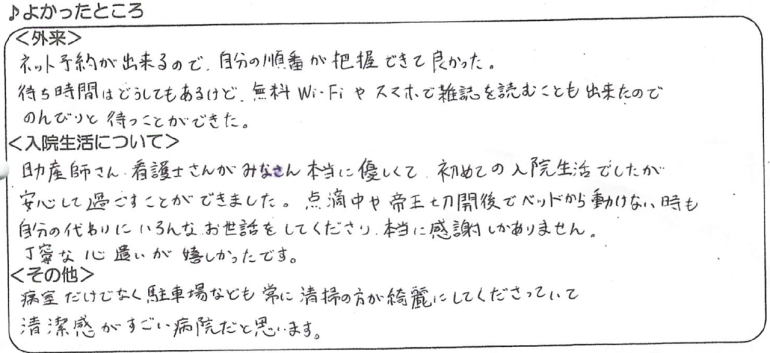 ♪よかったところ
<外来>
ネット予約が出来るので、自分の順番が把握できて良かった。
待ち時間はどうしてもあるけど、無料Wi-Fiやスマホで雑誌を読むことも出来たので
のんびりと待つことができた。
<入院生活について>
助産師さん、看護士さんがみなさん本当に優しくて、初めての入院生活でしたが
安心して過ごすことができました。点滴中や帝王切開後でベッドから動けない時も
自分の代わりにいろんなお世話をしてくださり、本当に感謝しかありません。
丁寧な心遣いが嬉しかったです。
<その他>
病室だけでなく駐車場なども常に清掃の方が綺麗にしてくださっていて
清潔感がすごい病院だと思います。